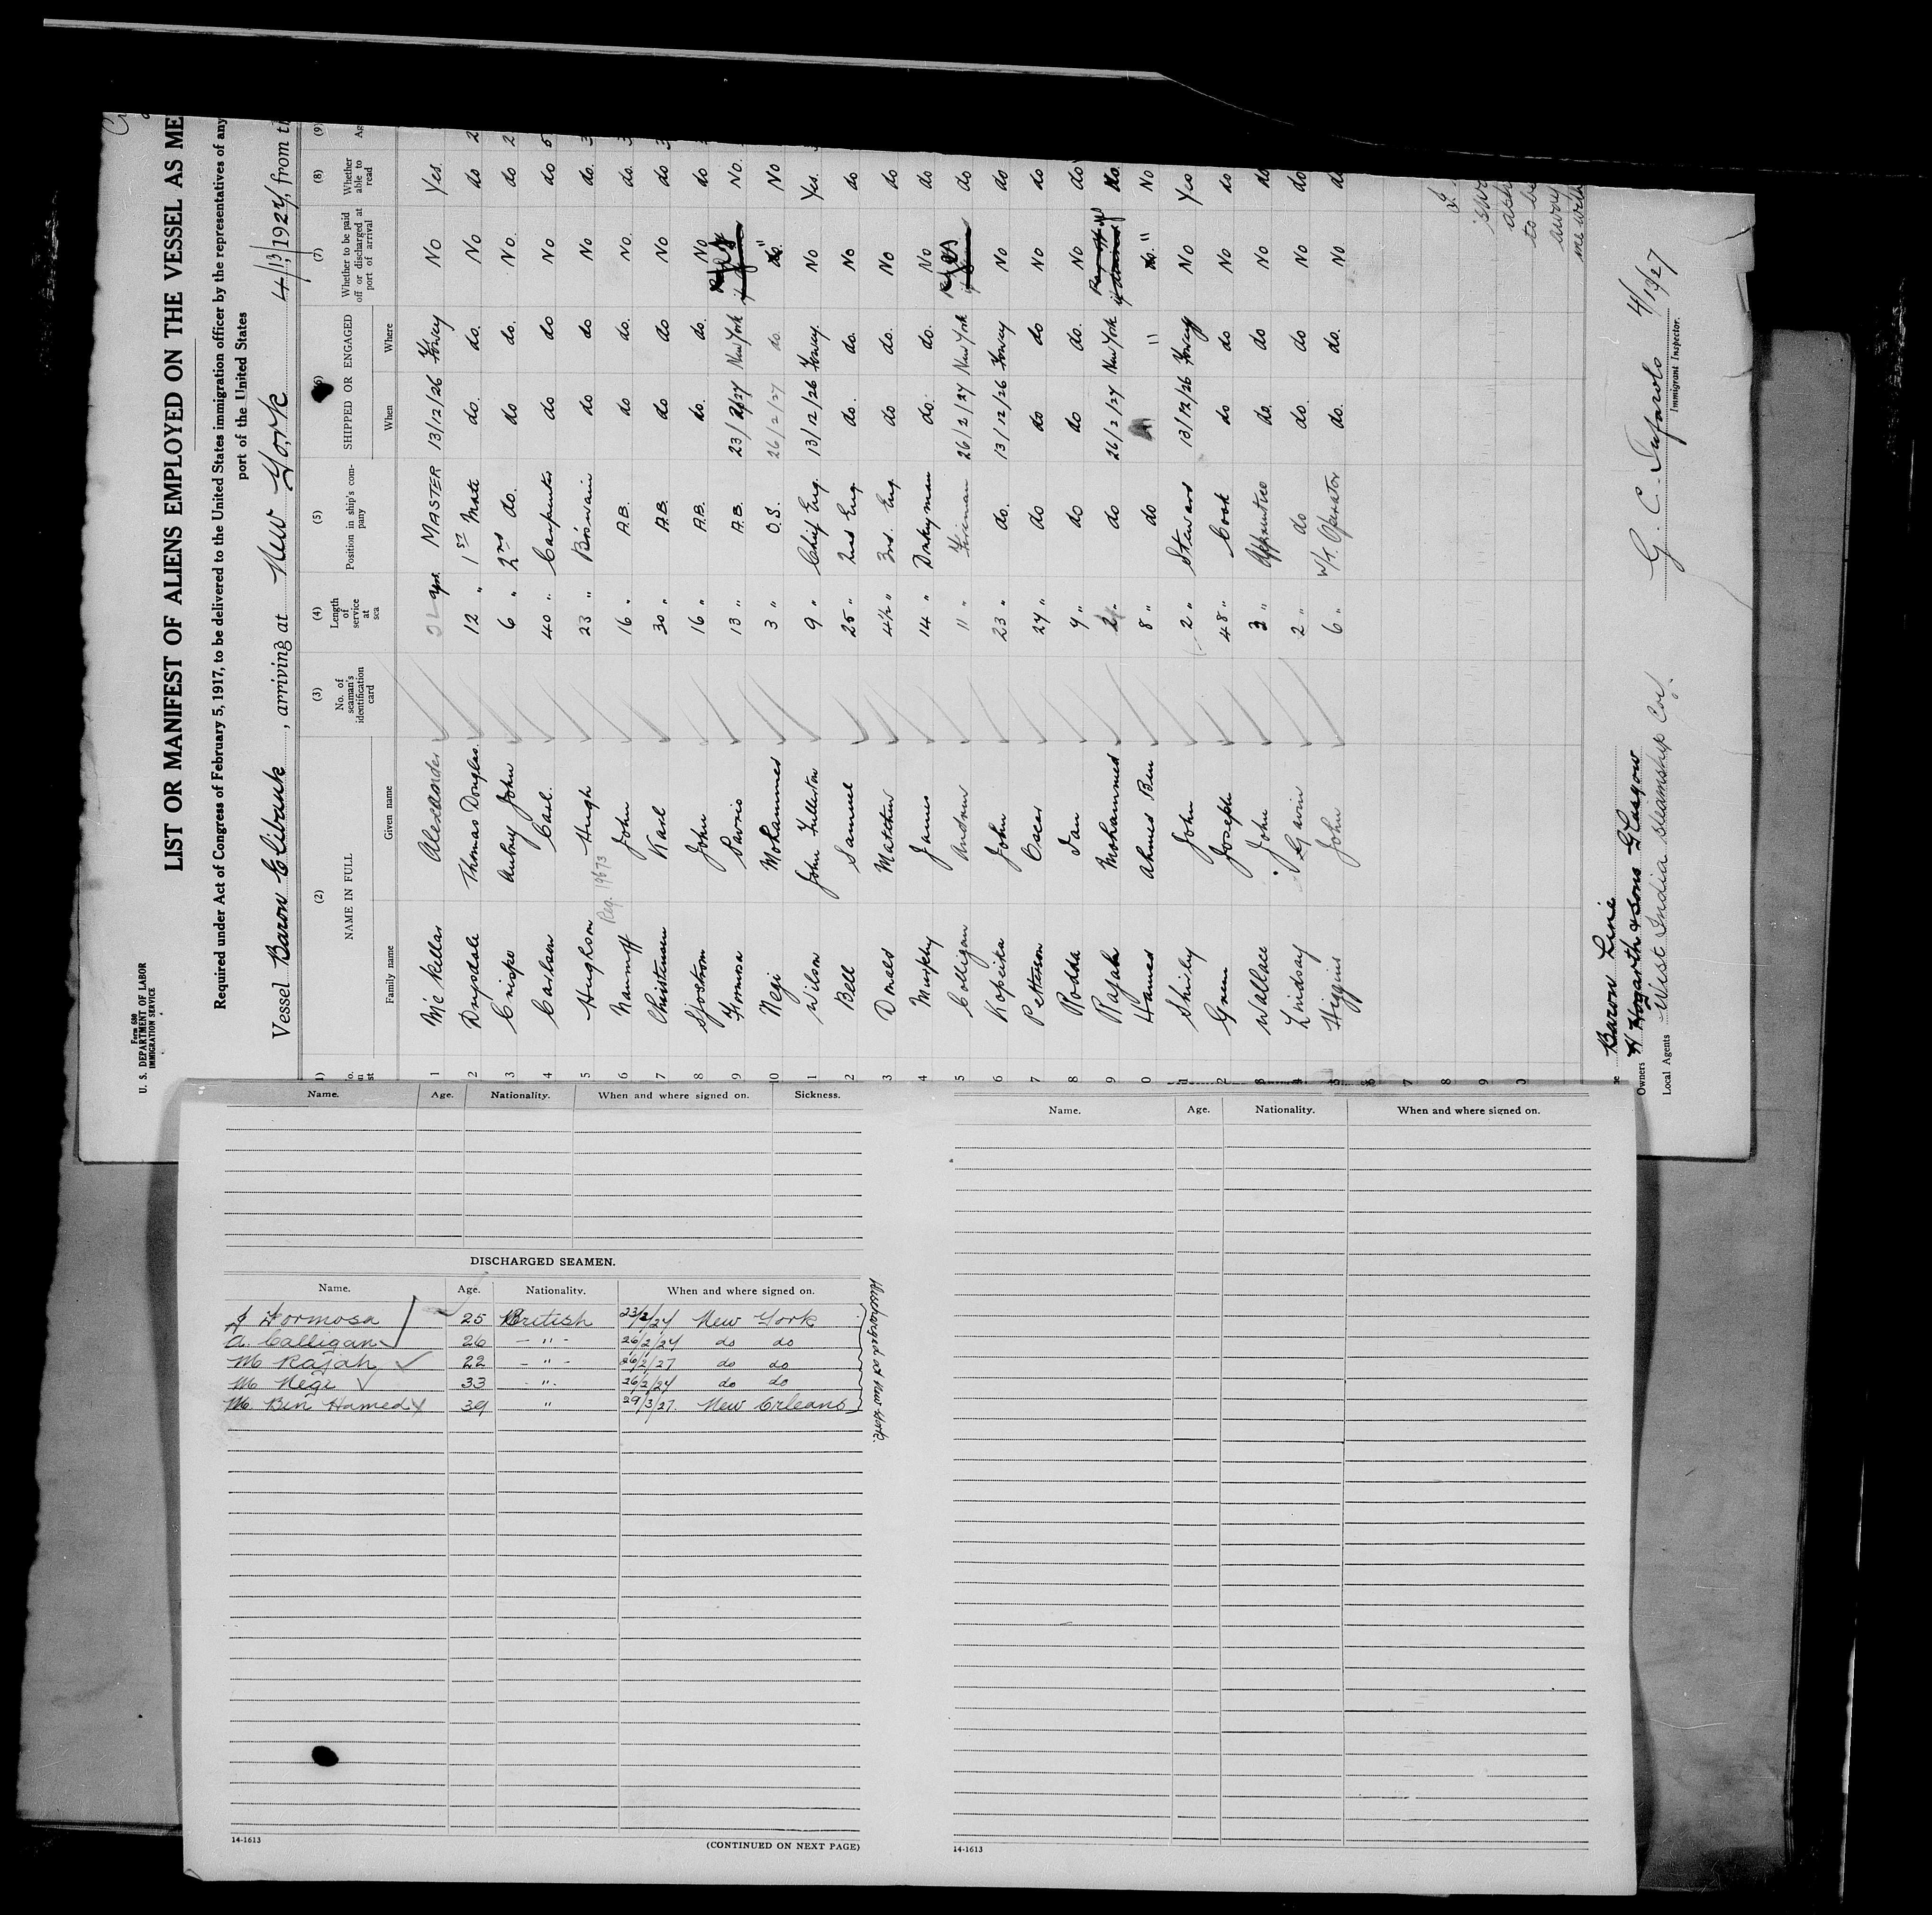 Form 680
U. S. DEPARTMENT OF LABOR
IMMIGRATION SERVICE
LIST OR MANIFEST OF ALIENS EMPLOYED ON THE VESSEL AS ME
Required under Act of Congress of February 5, 1917, to be delivered to the United States immigration officer by the representatives of any
port of the United States
Vessel Baron Elibank, arriving at New York 4/13/, 1927, from th
(2) (3) (4) (5) (6) (7) (8) (9)
NAME IN FULL No. of seaman's identification card Length of service at sea Position in ship's company SHIPPED OR ENGAGED Whether to be paid off or discharged at port of arrival Whether able to read Ag
Family name Given name When Where
1 McKellar Alexander yrs. MASTER 13/12/26 Fowey No Yes.
2 Drysdale Thomas Douglas. 12 " 1st Mate do. do. No do 2
3 Crispo Aubry John 6 " 2nd do. do do. No. do 2
4 Carlson Carl. 40 " Carpenter do do No do 5
5 Hughson Hugh 23 " Bo'swain do do No do. 3
Reg. 19673
6 John 16 " A.B. do do. No. do. 3
7 Christensen Karl 30 " A.B. do do No do 3
8 Sjostrom John 16 " A.B. do. do. No do
9 Formosa Savrio 13 " A.B. 23/2/27 New York No.
0 Negi Mohammed 3 " O.S. 26/2/27 do. do. " No
1 Wilson John Fullerton 9 " Chief Eng. 13/12/26 Fowey. No Yes.
2 Bell Samuel 25 " 2nd Eng. do. do. No do
3 Donald Matthew 4½ " 3rd. Eng. do do. No do
4 Murphy James 14 " Donkeyman do. do. No do
5 Colligan Andrew 11 " Fireman 26/2/27 New York do
6 Kopeika John 23 " do. 13/12/26 Fowey No do
7 Petterson Oscar 27 " do do do No do
8 Rodda Ian 9 " do do do. No do
9 Rajah Mohammed 2 " do 26/2/27 New York No.
0 Hamed Ahmed Ben 8 " do " do. " No
1 Shirley John 2 " Steward 13/12/26 Fowey No Yes
2 Green Joseph 48 " Cook do do No do
3 Wallace John 3 " Apprentice do. do No do
4 Lindsay Gavin 2 " do do. do No do
5 Higgins John 6 " W/T. Operator do. do. No do
7
8
9
0
Baron Line
Owners H Hogarth & Sons Glasgow
Local Agents West India Steamship Coy.
G. C. Tufarolo 4/13/27
Immigrant Inspector.
to be
away
me with
Name. Age. Nationality. When and where signed on. Sickness.
DISCHARGED SEAMEN.
Name. Age. Nationality. When and where signed on.
J Formosa 25 British 23/2/27 New York
A. Calligan 26 - " - 26/2/27 do do
M Rajah 22 - " - 26/2/27 do do
M Negi 33 - " - 26/2/27 do do
M. Bin Hamed 39 " 29/3/27. New Orleans
Discharged at New York.
14-1613
(CONTINUED ON NEXT PAGE)
Name. Age. Nationality. When and where signed on.
14-1613